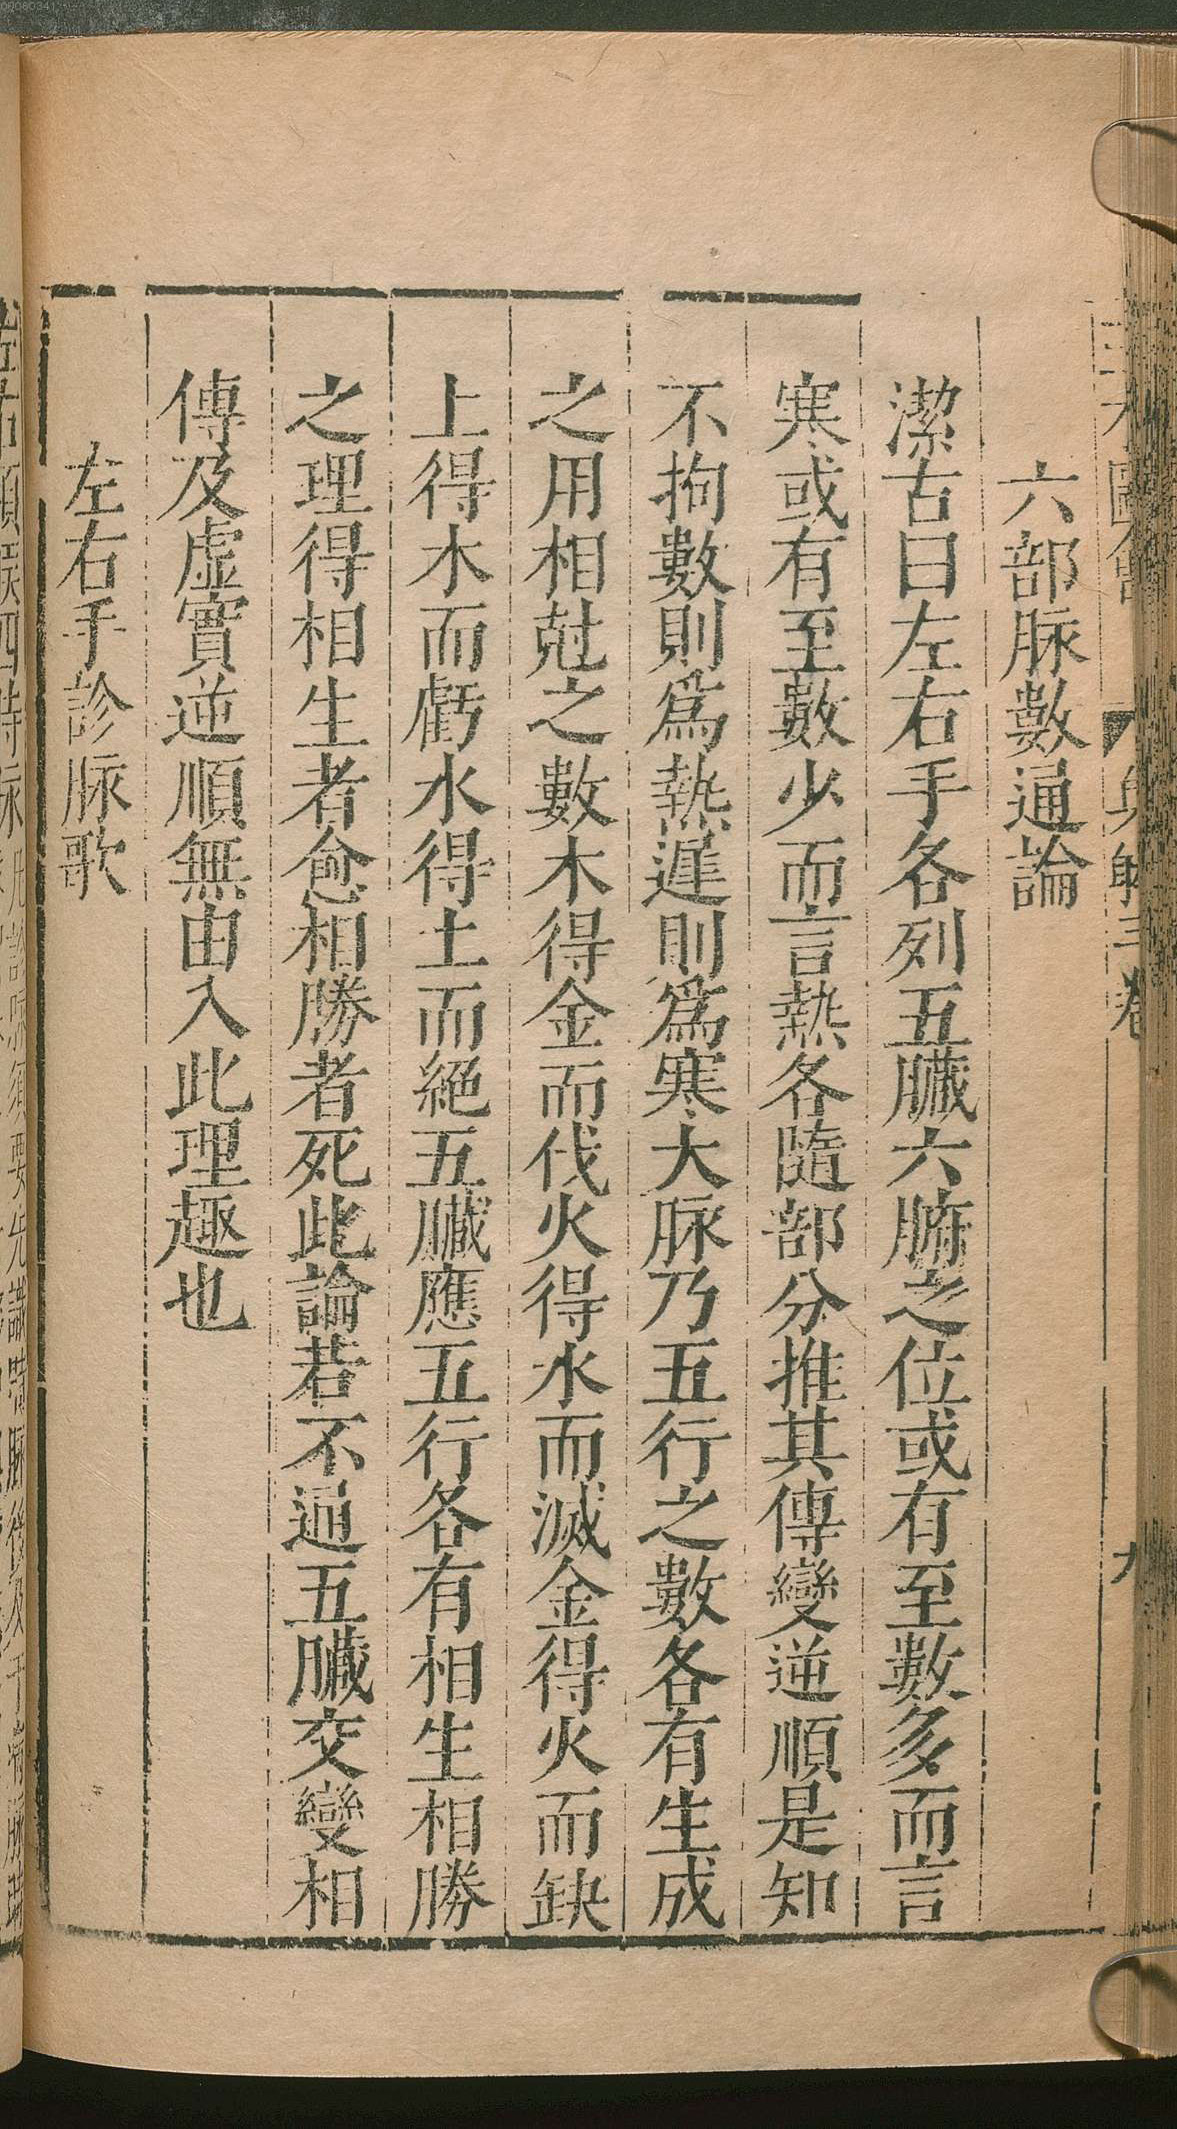 六部脉數通論
潔古曰左右手各列五臟六腑之位或有至數多而言
寒或有至數少而言熱各隨部分推其傳變逆順是知
不拘數則爲熱遲則爲寒大脉乃五行之數各有生成
之用相尅之數木得金而伐火得水而滅金得火而缺
上得木而虧水得土而絕五臟應五行各有相生相勝
之理得相生者愈相勝者死此論若不通五臟交變相
傳及虛實逆順無由入此理趣也
左右手診脉歌